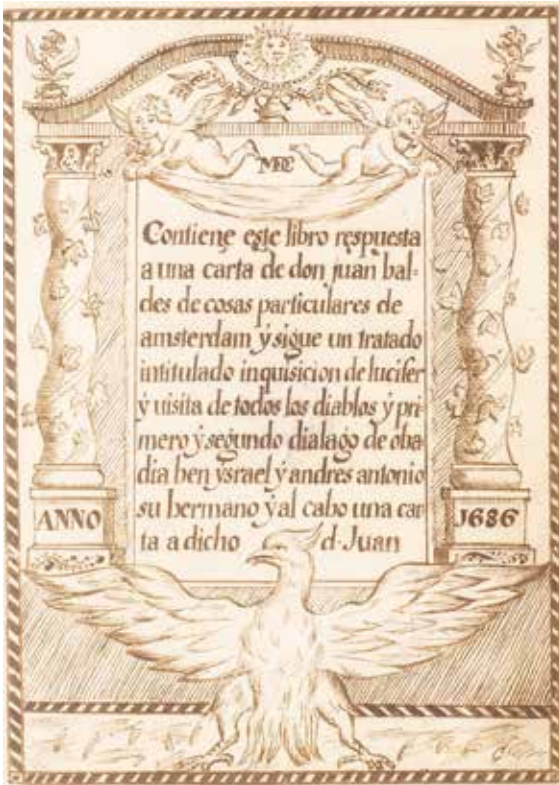 MPC
Contiene este libro respuesta
a una carta de don juan bal=
des de cosas particulares de
amsterdam y sigue un tratado
intitulado inquisicion de lucifer
y uisita de todos los diablos y pri
mero y segundo dialago de oba
dia ben ysrael y andres antonio
su hermano y al cabo una car
ta a dicho d. Juan
ANNO 1686